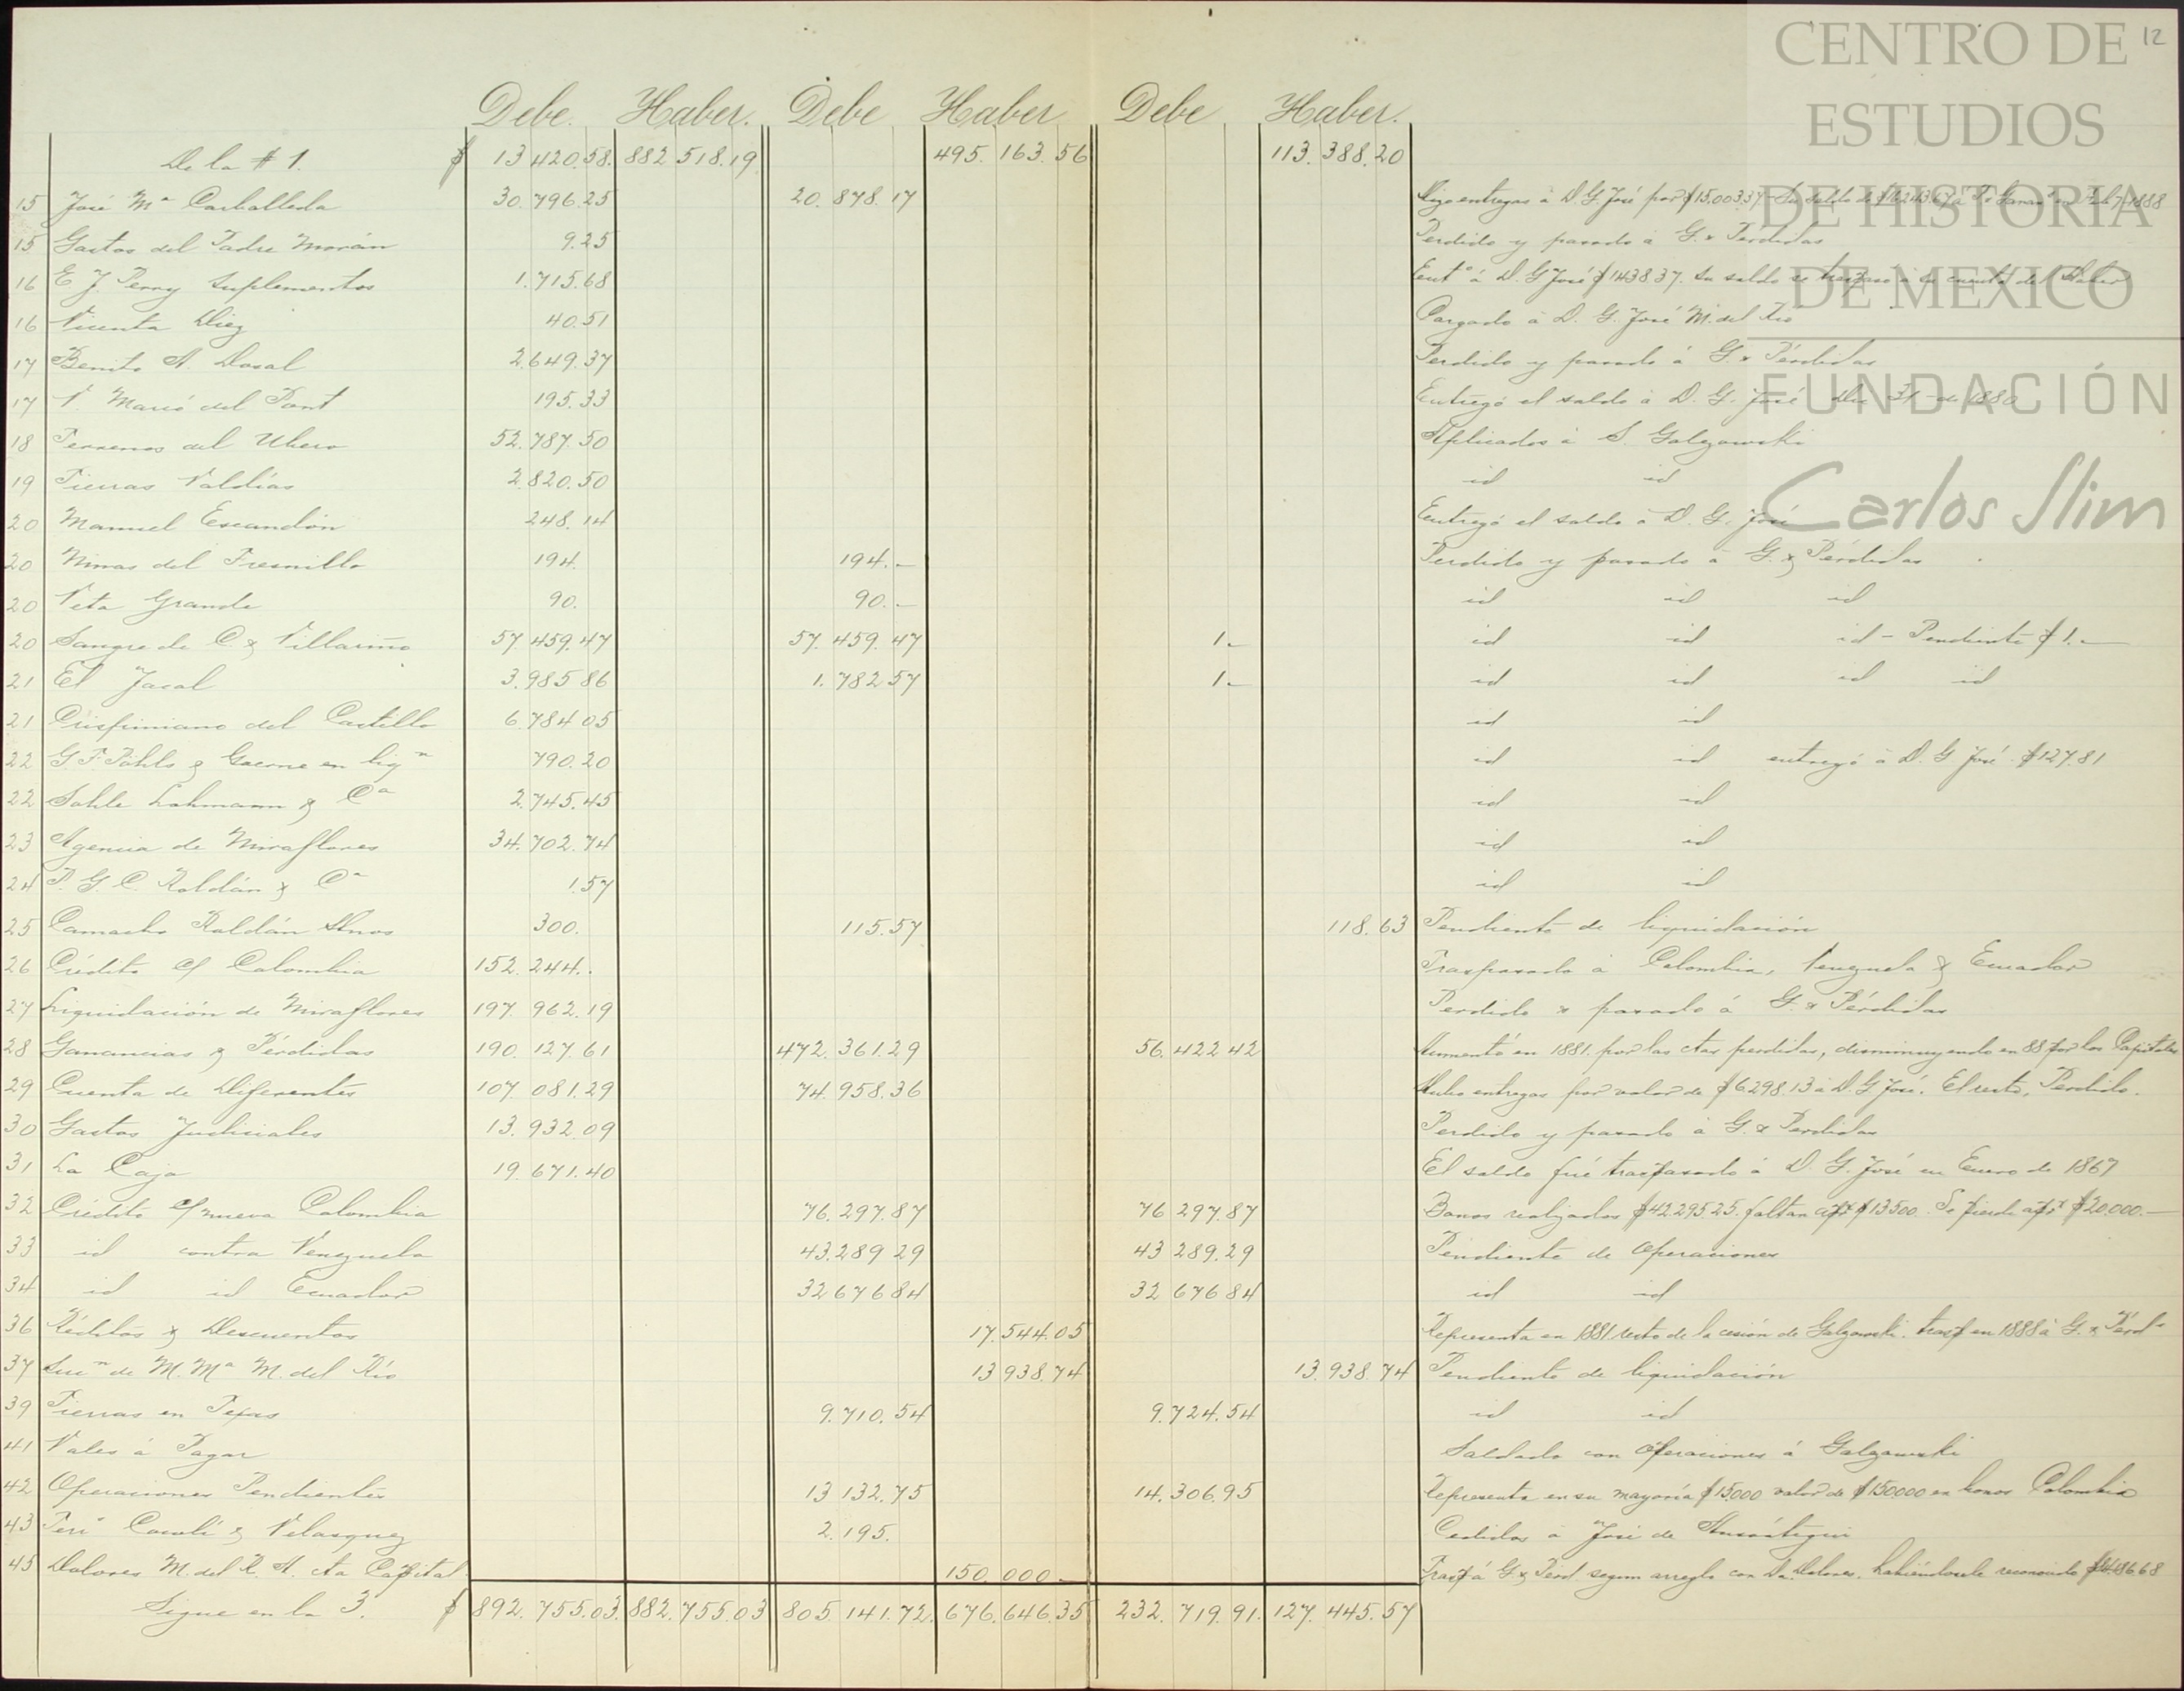 12
CENTRO DE
ESTUDIOS
DE HISTORIA
DE MEXICO
FUNDACIÓN
Carlos Slim
Debe. Haber. Debe Haber Debe Haber.
De la # 1. $ 13 420.58. 882 518.19 495. 163. 56 113. 388. 20
15 José Mª Carballeda 30.796.25 20.878.17 Hizo entregas á D. G. José por $15.003.37 - Su saldo de
15 Gastos del Padre Morán 9.25 Perdido y pasado á G. & Pérdidas
16 E J Perry Suplementos 1.715.68 á D. G José $1438.37. Su saldo se traspasó á su cuenta del Haber
16 Vicenta Diez 40.51 Cargado á D. G. José M. del Rio
17 Benito A. Dosal 2.649.37 Perdido y pasado á G. & Pérdidas
17 V. Marié del Pont 195.33 Entregó el saldo á D. G. José Dic 31 - de 1880
18 Terrenos del Uhero 52.787.50 Aplicados á S. Galzawski
19 Tierras Valdías 2.820.50 id id
20 Manuel Escandón 248.14 Entregó el saldo á D. G. José
20 Minas del Fresnillo 194. 194.- Perdido y pasado á G. & Pérdidas
20 Veta Grande 90. 90.- id id id
20 Sangre de C. & Villariño 57 459.47 57. 459. 47 1.- id id id - Pendiente $ 1.-
21 El Jacal 3.985 86 1.782 57 1.- id id id id
21 Crispiniano del Castillo 6.784 05 id id
22 G. F. Pohls & en liqⁿ 790.20 id id entregó á D. G José $127.81
22 Sohle Lahmann & Cª 2.745.45 id id
23 Agencia de Miraflores 34.702.74 id id
24 P. G. C. Roldán & Cª 1.57 id id
25 Camacho Roldán Hnos 300. 115.57 118.63 Pendiente de liquidación
26 Crédito c/ Colombia 152.244.. Traspasado á Colombia, Venezuela & Ecuador
27 Liquidación de Miraflores 197.962.19 Perdido & pasado á G. & Pérdidas
28 Ganancias & Pérdidas 190.127.61 472.361.29 56.422 42 Aumentó en 1881. por las ctas perdidas, disminuyendo en 88 por los Capitales
29 Cuenta de Diferentes 107 081.29 74.958.36 Hubo entregas por valor de $6.298.13 á D. G José. El resto, Perdido.
30 Gastos Judiciales 13.932.09 Perdido y pasado á G. & Perdidas
31 La Caja 19.671.40 El saldo fué traspasado á D. G. José en Enero de 1867
32 Crédito c/ nueva Colombia 76.297.87 76 297.87 Bonos realizados $42.295.25. faltan apx $13500 Se pierde apx $20.000.-
33 id contra Venezuela 43.289 29 43 289.29 Pendiente de Operaciones
34 id id Ecuador 32 676 84 32 676 84 id id
36 Réditos & Descuentos 17.544.05 Representa en 1881 resto de la cesión de Galzawski. trasp en 1888 á G. & Pérds
37 Sucⁿ de M. Mª M. del Río 13 938.74 13.938.74 Pendiente de liquidación
39 Tierras en Texas 9.710.54 9.724.54 id id
41 Vales á Pagar Saldado con Operaciones á Galzawski
42 Operaciones Pendientes 13 132.75 14.306.95 Representa en su mayoría $15.000 valor de $150000 en bonos Colombia
43 & Velasquez 2.195. Cedidos á José de
45 Dolores M. del R. H. cta Capital. 150.000- Trasp á G & Pérd segun arreglo con Da. Dolores. habiéndosele reconocido
Sigue en la 3. $ 892.755.03. 882.755.03 805.141.72. 676.646.35 232.719.91. 127.445.57